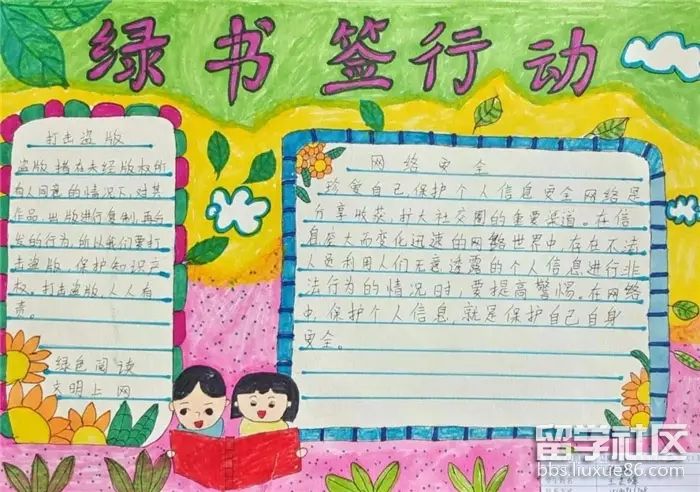 绿书签行动
打击盗版
盗版指在未经版权所
有人同意的情况下,对其
作品、出版进行复制,再台
发的行为,所以我们要打
击盗版,保护知识产
权。打击盗版,人人有
责。
绿色阅读
文明上网
网络安全
珍爱自己,保护个人信息安全网络是
分享收获、扩大社交圈的重要渠道。在信
息庞大而变化迅速的网络世界中,存在不法
人员利用人们无意透露的个人信息进行非
法行为的情况时,要提高警惕。在网络
中,保护个人信息,就是保护自己自身
安全。
留学社区
bbs.liuxue86.com